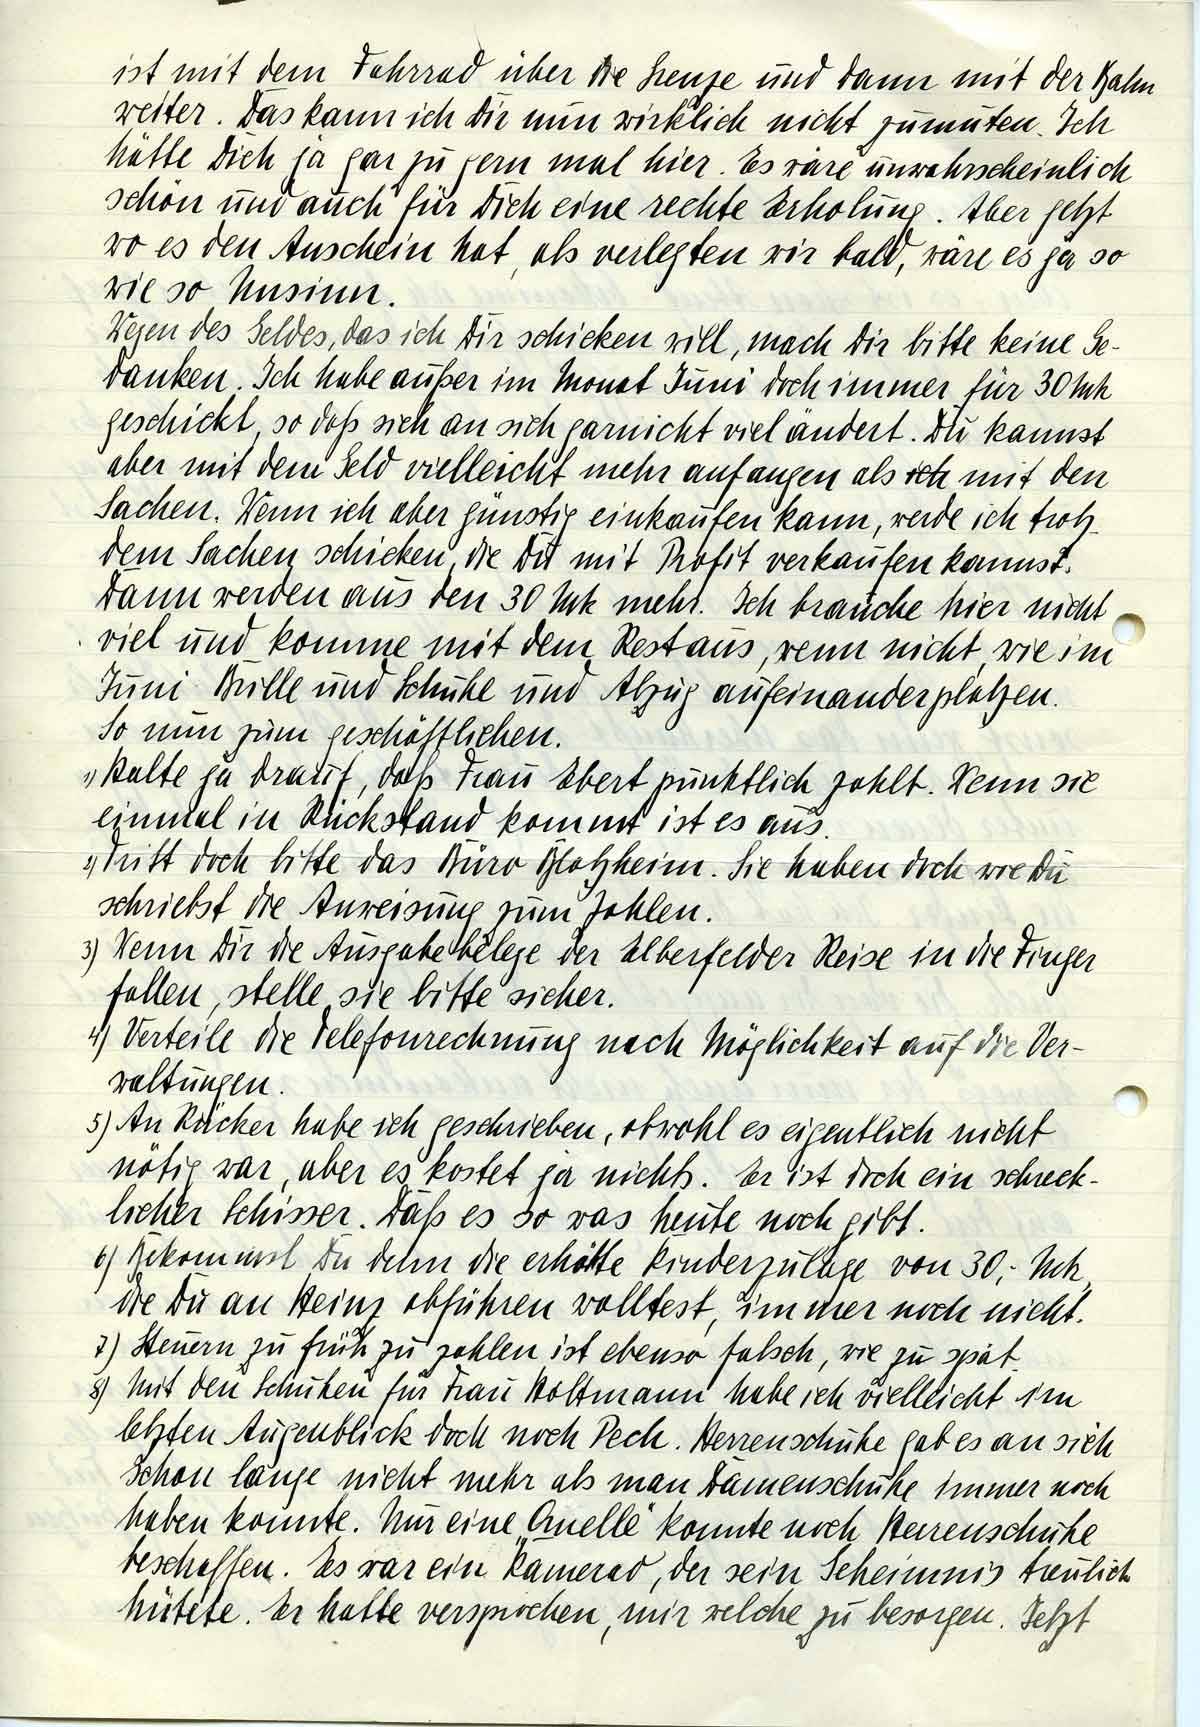 ist mit dem Fahrrad über die Grenze und dann mit der Bahn
weiter. Das kann ich Dir nun wirklich nicht zumuten. Ich
hätte Dich ja gar zu gern mal hier. Es wäre unwahrscheinlich
schön und auch für Dich eine rechte Erholung. Aber jetzt
wo es den Anschein hat, als verlegten wir bald, wäre es ja so
wie so Unsinn.
Wegen des Geldes, das ich Dir schicken will, mach Dir bitte keine Ge-
danken. Ich habe außer im Monat Juni doch immer für 30 Mk
geschickt, so daß sich an sich garnicht viel ändert. Du kannst
aber mit dem Geld vielleicht mehr anfangen als ich mit den
Sachen. Wenn ich aber günstig einkaufen kann, werde ich trotz-
dem Sachen schicken, die Du mit Profit verkaufen kannst.
Dann werden aus den 30 Mk mehr. Ich brauche hier nicht
viel und komme mit dem Rest aus, wenn nicht, wie im
Juni Brille und Schuhe und Abzug aufeinanderplatzen.
So nun zum geschäftlichen.
1) Halte ja drauf, daß Frau Ebert pünktlich zahlt. Wenn sie
einmal in Rückstand kommt ist es aus.
2) Tritt doch bitte das Büro Blatzheim. Sie haben doch wie Du
schriebst die Anweisung zum Zahlen.
3) Wenn Dir die Ausgabebelege der Elberfelder Reise in die Finger
fallen, stelle sie bitte sicher.
4) Verteile die Telefonrechnung nach Möglichkeit auf die Ver-
waltungen.
5) An Räcker habe ich geschrieben, obwohl es eigentlich nicht
nötig war, aber es kostet ja nichts. Er ist doch ein schreck-
licher Schisser. Daß es so was heute noch gibt.
6) Bekommst Du denn die erhöhte Kinderzulage von 30,- Mk,
die Du an Heinz abführen wolltest, immer noch nicht.
7) Steuern zu früh zu zahlen ist ebenso falsch, wie zu spät.
8) Mit den Schuhen für Frau Holtmann habe ich vielleicht im
letzten Augenblick doch noch Pech. Herrenschuhe gab es an sich
schon lange nicht mehr als man Damenschuhe immer noch
haben konnte. Nur eine „Quelle" konnte noch Herrenschuhe
beschaffen. Es war ein Kamerad, der sein Geheimnis treulich
hütete. Er hatte versprochen, mir welche zu besorgen. Jetzt